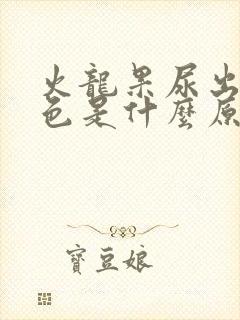 火龍果尿出
色是什麼原
寶豆娘